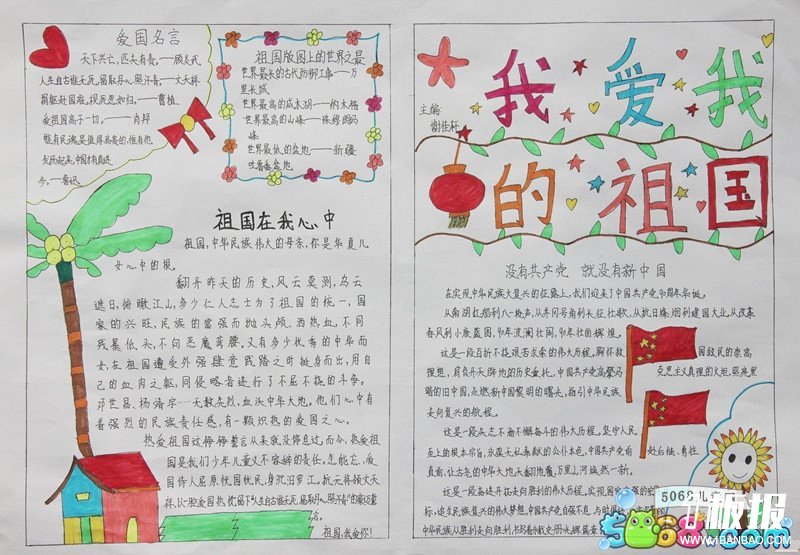 爱国名言
天下兴亡，匹夫有责。——顾炎武
人生自古谁无死，留取丹心照汗青。——文天祥
捐躯赴国难，视死忽如归。——曹植
爱祖国高于一切。——肖邦
惟有民族是值得宝贵的，惟有他
发扬起来，中国才有真进
步。——鲁迅
祖国版图上的世界之最
世界最长的古代防御工事——万
里长城
世界最高的咸水湖——纳木错
世界最高的山峰——珠穆朗玛
峰
世界最低的盆地——新疆
吐鲁番盆地
祖国在我心中
祖国，中华民族伟大的母亲，你是华夏儿
女心中的根。
翻开昨天的历史，风云莫测，乌云
遮日，俯瞰江山，多少仁人志士为了祖国的统一，国
家的兴旺，民族的富强而抛头颅、洒热血，不向
残暴低头，不向恶魔弯腰，又有多少优秀的中华而
女，在祖国遭受外强肆意践踏之时挺身而出，用自
己的血肉之躯，同侵略者进行了不屈不挠的斗争。
邓世昌、杨靖宇…
血沃中华大地。他们心中有
着强烈的民族责任感，有一颗炽热的爱国之心。
热爱祖国这铮铮誓言从来就没停息过，而今，热爱祖
国是我们少年儿童义不容辞的责任。怎能忘，爱
国诗人屈原忧国忧民，身沉汨罗江，
祖国，我爱你！
我爱我
的祖国
主编：
没有共产党 就没有新中国
在实现中华民族大复兴的征路上，我们迎来了中国共产党90周年华诞。
从南湖红船到八一枪声，从井冈号角到长征壮歌，从抗日烽烟到建国大业，从改革
春风到小康蓝图，90年波澜壮阔，90年壮丽辉煌。
这是一段百折不挠艰苦求索的伟大历程。胸怀救国救民的崇高
理想，肩负开天辟地的历史重托，中国共产党高擎马克思主义真理的火炬，照亮黑
暗的旧中国，点燃新中国黎明的曙光，指引中华民族
走向复兴的航程。
这是一段矢志不渝不懈奋斗的伟大历程。坚守人民
至上的根本宗旨，永葆无私奉献的公仆本色，中国共产党前赴后继、勇往
直前，让古老的中华大地天翻地覆，万里山河焕然一新。
这是一段奋进开拓走向胜利的伟大历程。
5068儿
板报
WWW.1BANBAO.COM